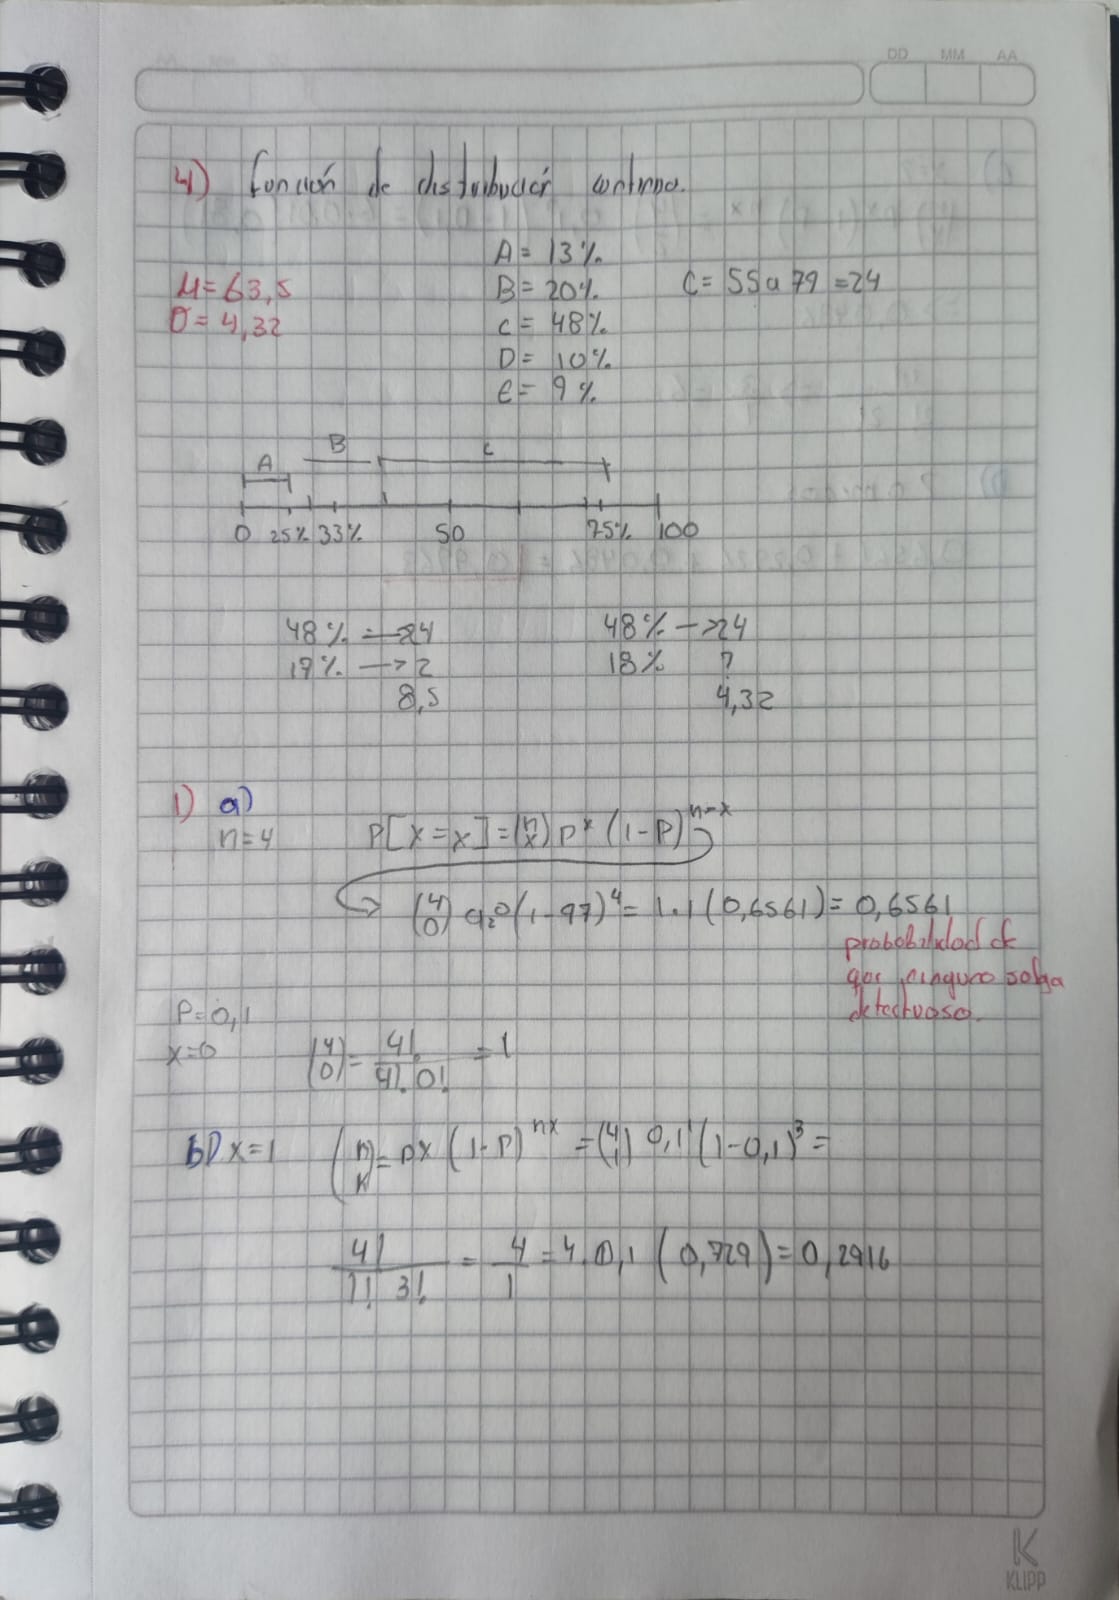 DD MM AA
4) función de distribución continua.
A = 13%
μ = 63,5 B = 20% C = 55 a 79 = 24
σ = 4,32 C = 48%
D = 10%
E = 9%
A B C
0 25% 33% 50 75% 100
48% → 24 48% → 24
17% → ? 18% ?
8,5 4,32
1) a)
n=4 P[X=x] = (n x) p^x (1-p)^n-x
(4 0) (1-97)^4 = 1.1 (0,6561) = 0,6561
probabilidad de
que ninguno salga
defectuoso.
P=0,1
x=0 (4 0) = 4!/4! 0! = 1
b) x=1 (n x) = px (1-p)^nx = (4 1) 0,1^1 (1-0,1)^3 =
4!/1! 3! = 4/1 = 4.0,1 (0,729) = 0,2916
K
KLIPP